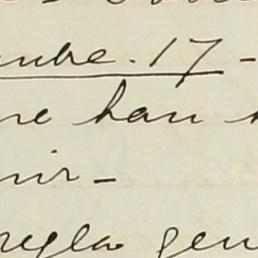 mbre. 17 -
ne han
nir -
regla gen